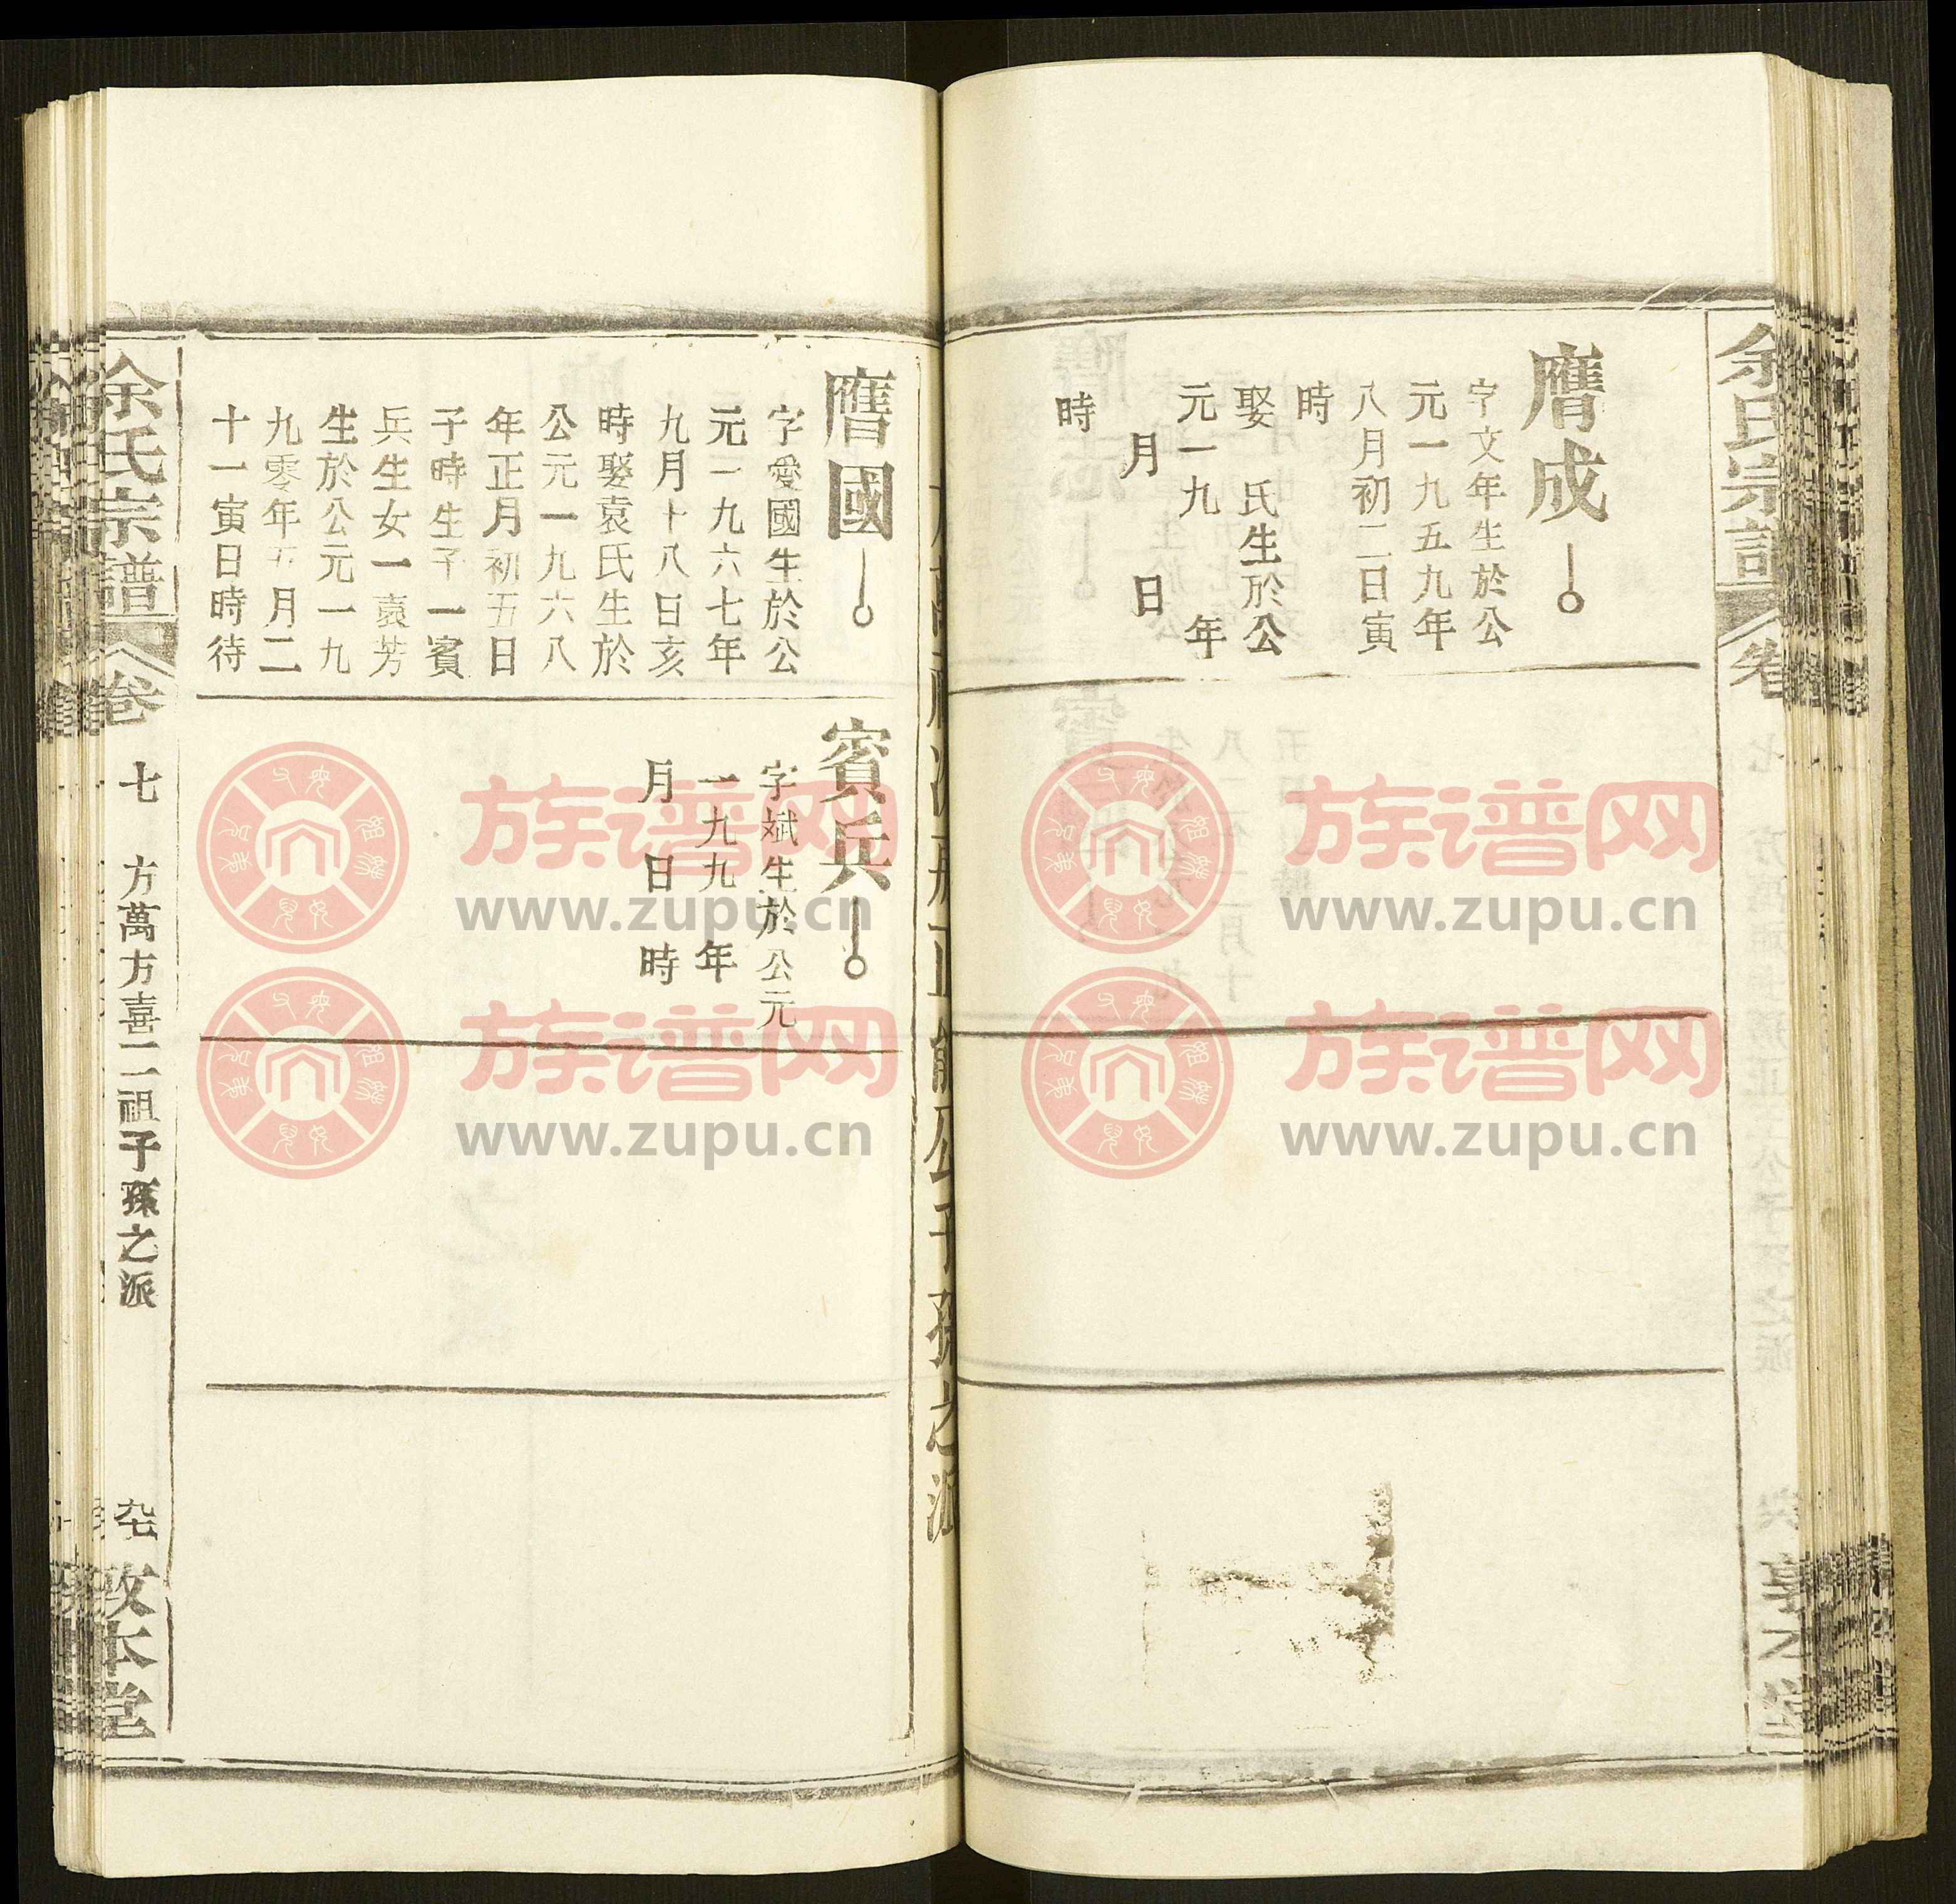 余氏宗譜
卷
膺成
字文年生於公
元一九五九年
八月初二日寅
時
娶 氏生於公
元一九 年
月 日
時
膺國
字愛國生於公
元一九六七年
九月十八日亥
時娶袁氏生於
公元一九六八
年正月初五日
子時生子一賓
兵生女一袁芳
生於公元一九
九零年五月二
十一寅日時待
賓兵
字斌生於公元
一九九 年
月 日 時
余氏宗譜
卷
七
方萬方喜二祖子孫之派
本堂
族谱网
www.zupu.cn
族谱网
www.zupu.cn
族谱网
www.zupu.cn
族谱网
www.zupu.cn